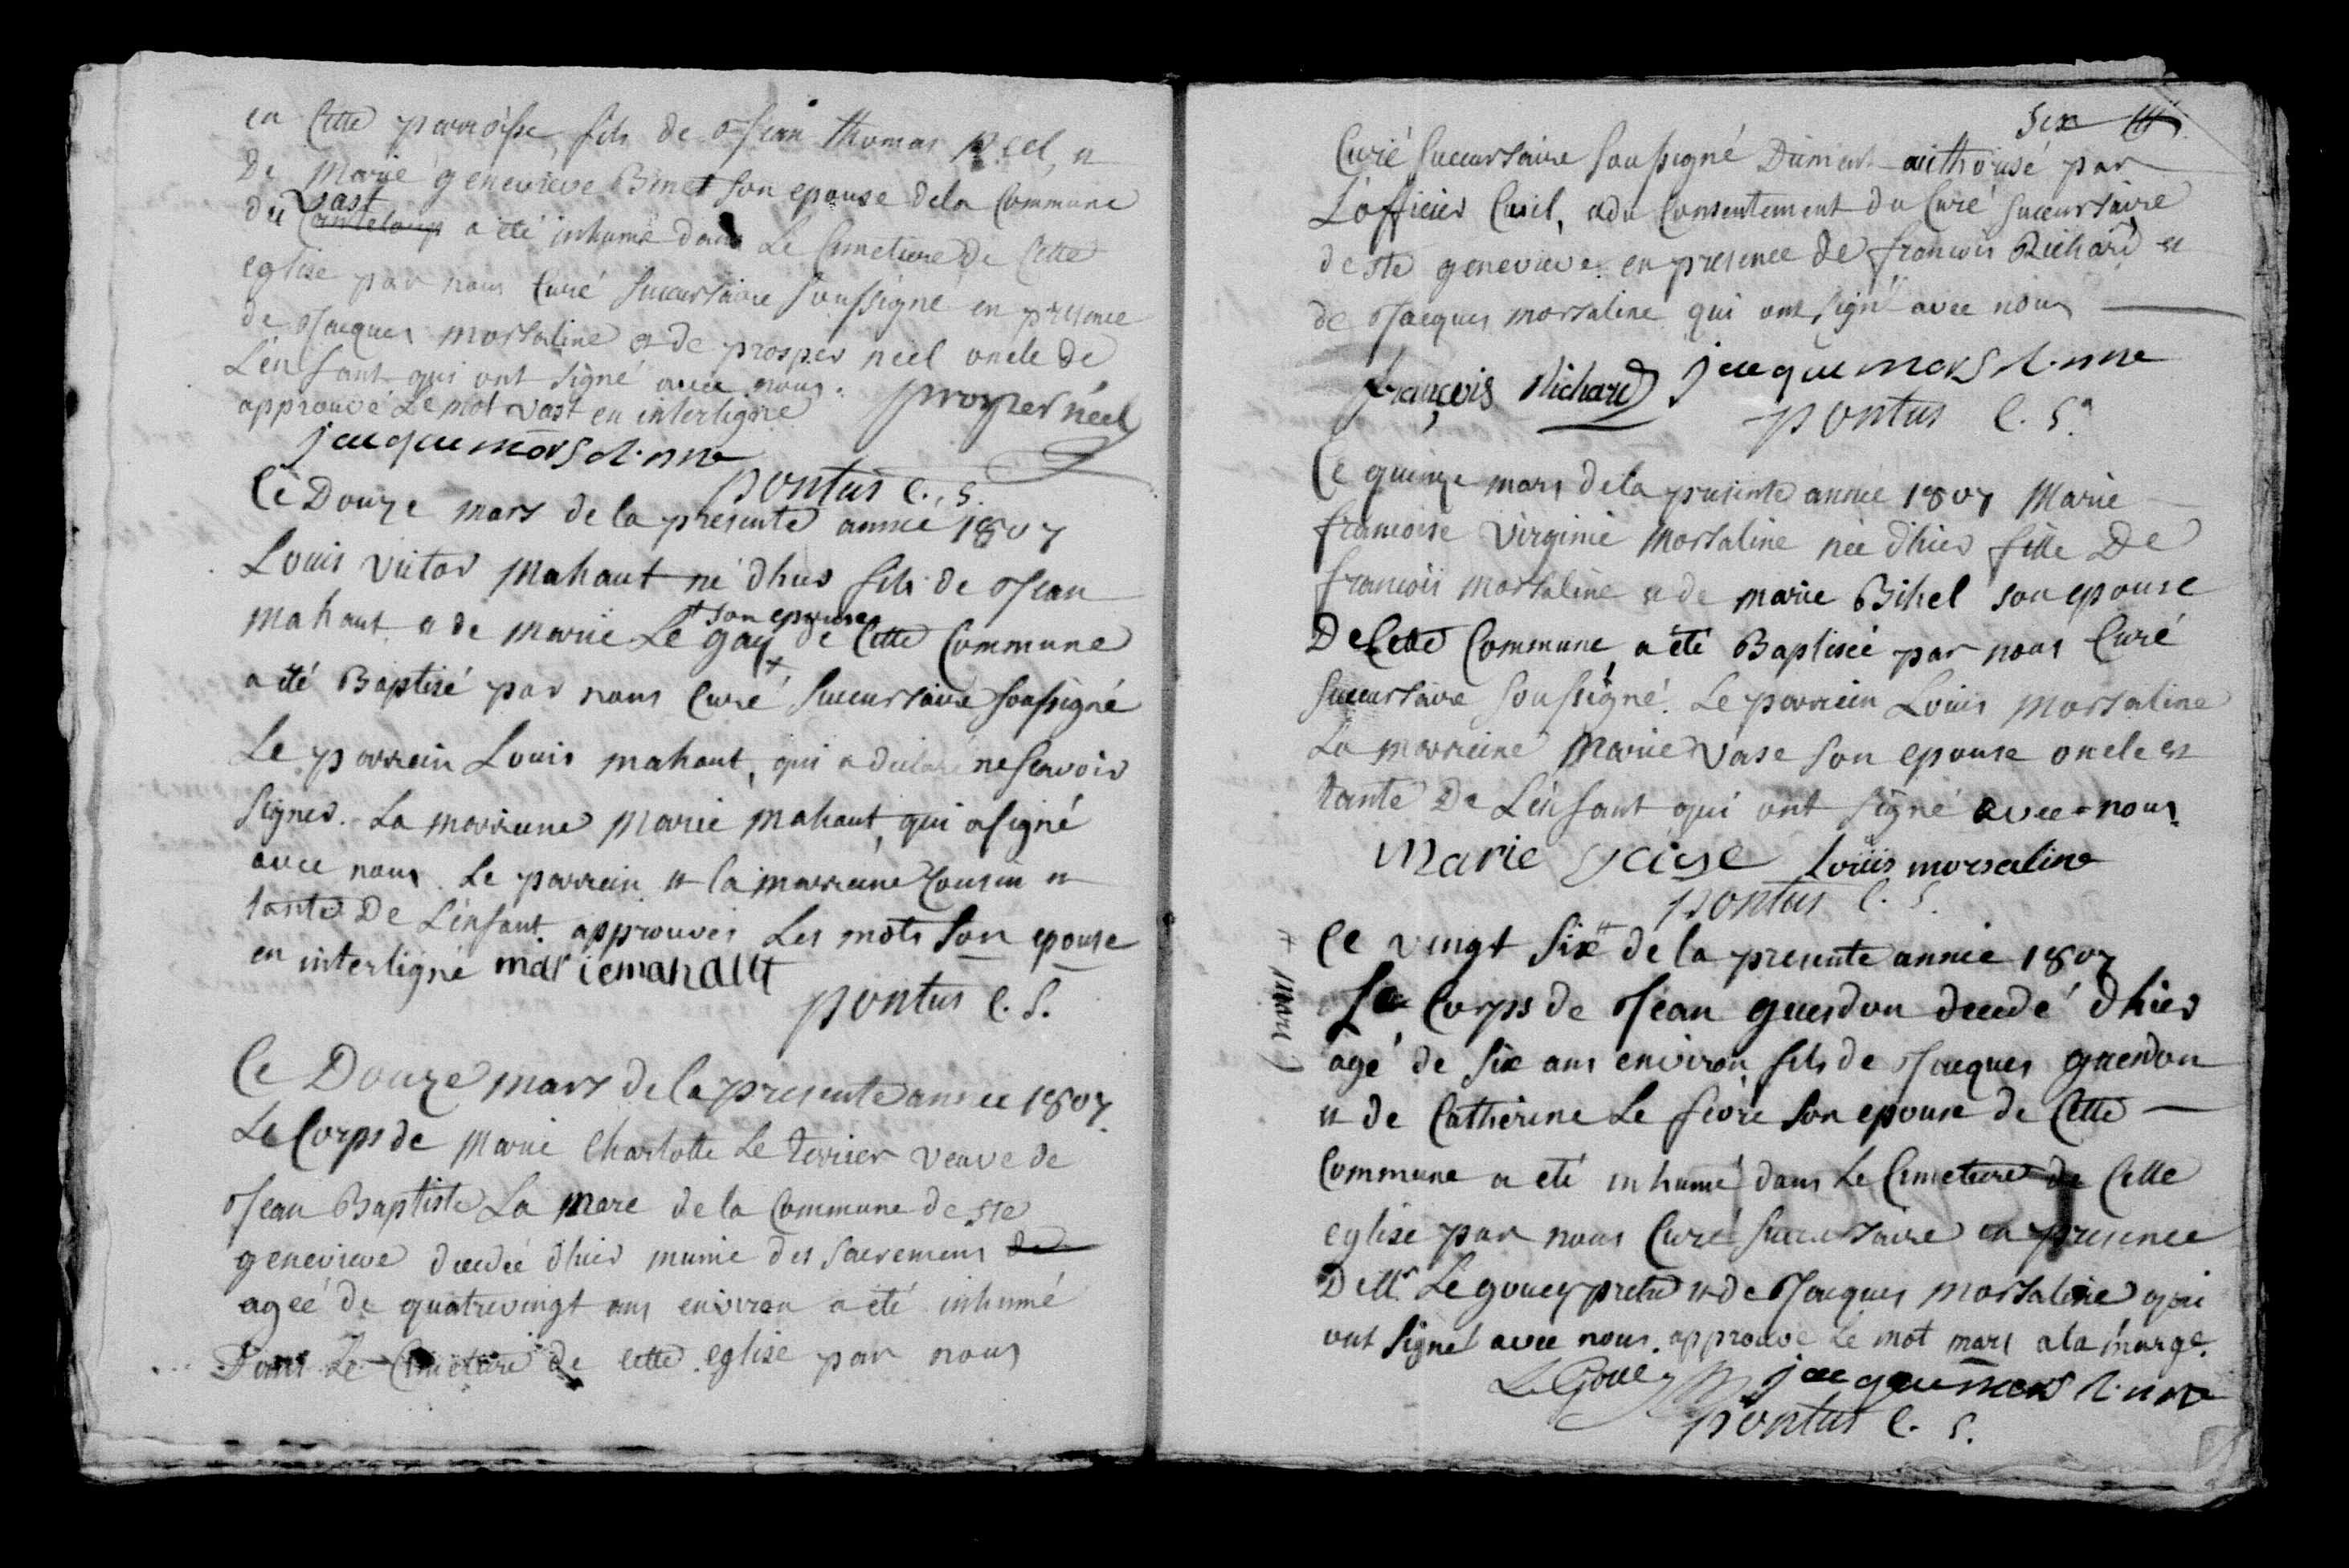 en Cette parroisse, fils de Jean thomas Néel, et
De Marie genevieve Binet son epouse dela Commune
Vast
du Canteloup a été inhumé dans Le Cimetiere De Cette
eglise par nous Curé Succursaire Soussigné en presence
de Jacques morsaline et de prosper neel oncle de
L'enfant qui ont signé avec nous.
approuvé Le mot vast en interligne prosper néel
jacque morsalinne
pontus C. S.
Ce Douze mars de la presente année 1807
Louis victor Mahaut né d'hier fils de Jean
+ son epouse
Mahaut et de Marie Le gay + de Cette Commune
a été Baptisé par nous Curé Succursaire Soussigné
Le parrein Louis mahaut, qui a declaré ne scavoir
signer. La marreine Marie Mahaut, qui a signé
avec nous. Le parrein et la marreine Cousin et
tante De L'enfant. approuvés Les mots Son epouse
en interligne marie mahaut
pontus C. S.
Ce Douze mars de la presente année 1807.
Le Corps de Marie Charlotte Le terrier veuve de
Jean Baptiste La Mare de la Commune de Ste
genevieve decedée d'hier munie des sacremens de
ageé de quatrevingt ans environ a été inhumé
Dans Le Cimetiere de cette eglise par nous
Six
Curé Succursaire Soussigné Dument authorisé par
L'officier Civil, et du Consentement du Curé Succursaire
de Ste genevieve en presence de francois Richard et
de Jacques morsaline qui ont signé avec nous
françois Richard jacque morsalinne
pontus C. S.
Ce quinze mars dela presente année 1807 Marie
francoise Virginie Morsaline née d'hier fille De
francois Morsaline et de marie Bihel son epouse
De Cette Commune, a été Baptisée par nous Curé
Succursaire Soussigné. Le parrein Louis Morsaline
La marreine Marie Vase son epouse oncle et
tante De L'enfant qui ont signé avec nous.
Marie vase Louis morsaline
pontus C. S.
Ce vingt Six + de la presente année 1807
+ Mars
Le Corps de Jean guerdon decedé d'hier
agé de Six ans environ fils de Jacques guerdon
et de Catherine Le fevre Son epouse de Cette
Commune a eté inhumé dans Le Cimetiere de Cette
eglise par nous Curé Succursaire en presence
De Mr. Le gouey pretre et de Jacques Morsaline qui
ont Signé avec nous. approuvé Le mot mars a la marge.
LeGouey jacque morsalinne
pontus C. S.